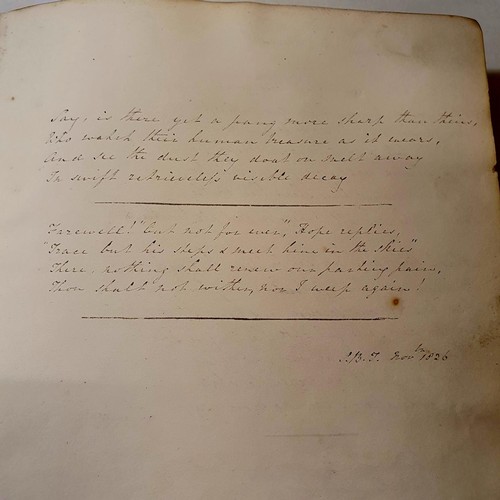 Say, is there yet a pang more sharp than theirs,
Who watch their human treasure as it wears,
And see the dust they doat on melt away
In swift retrieveless visible decay
Farewell! "but not for ever", Hope replies,
"Trace but his steps & meet him in the skies"
There, nothing shall renew our parting pain,
Thou shalt not wither, nor I weep again!
Novr 1826